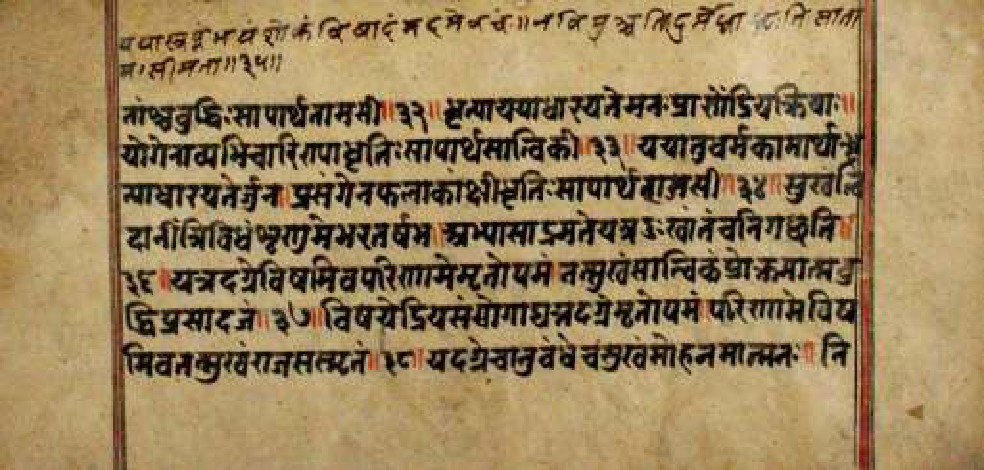 यया स्वप्नं भयं शोकं विषादं मदमेव च॥ न विमुञ्चति दुर्मेधा धृतिः सा ता
म।सी मता॥३५॥
तांश्च बुद्धिः सा पार्थ तामसी॥३२॥ धृत्या यया धारयते मनःप्राणेंद्रियक्रियाः॥
योगेनाव्यभिचारिण्या धृतिः सा पार्थ सात्विकी॥३३॥ यया तु धर्मकामार्थान्धृ
त्या धारयतेर्जुन॥प्रसंगेन फलाकांक्षी धृतिः सा पार्थ राजसी॥३४॥ सुखं त्वि
दानीं त्रिविधं शृणु मे भरतर्षभ॥अभ्यासाद्रमते यत्र दुःखांतं च निगच्छति॥
३६॥यत्तदग्रे विषमिव परिणामेमृतोपमं॥तत्सुखं सात्विकं प्रोक्तमात्मबु
द्धिप्रसादजं॥३७॥विषयेंद्रियसंयोगाद्यत्तदग्रेमृतोपमं॥परिणामे विष
मिव तत्सुखं राजसं स्मृतं॥३८॥यदग्रे चानुबंधे च सुखं मोहनमात्मनः॥ नि